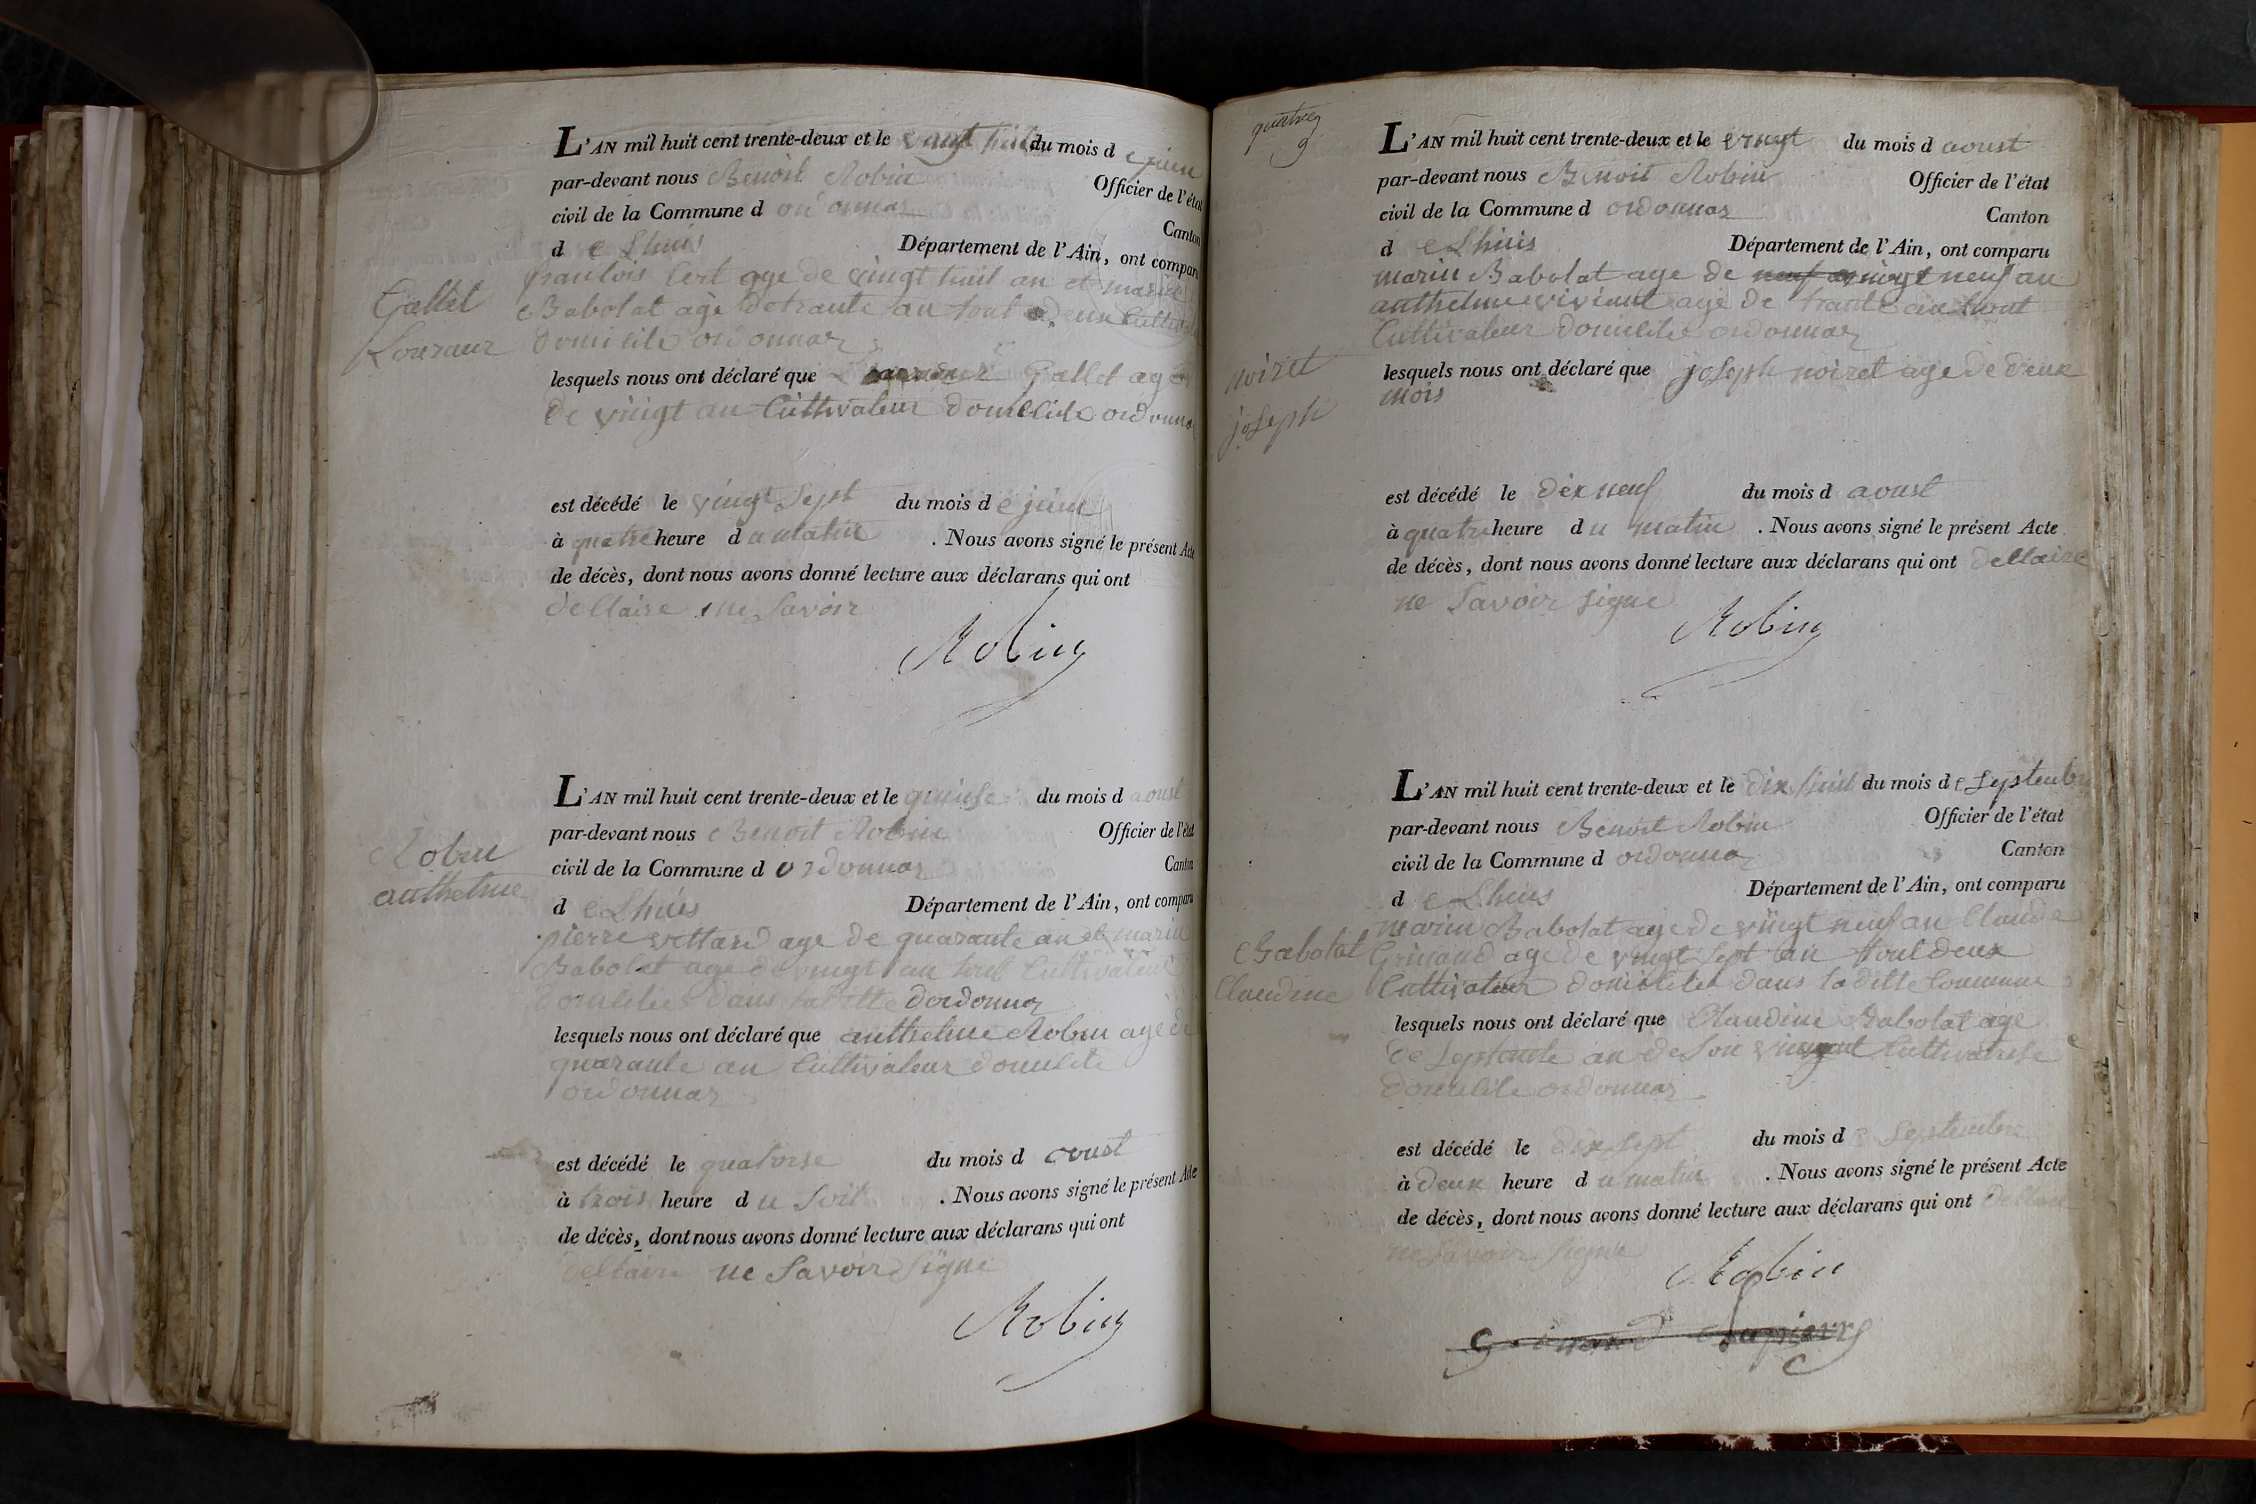 L'AN mil huit cent trente-deux et le vingt huit du mois d e juin
par-devant nous Benoit Robin Officier de l'état
civil de la Commune d ordonnaz Canton
d e Lhuis Département de l'Ain, ont comparu
francois age de vingt huit an et marie
Babolat age de trante an tout deux Cultiv
domicilie ordonnaz
Gallet
lesquels nous ont déclaré que Gallet age
de vingt an Cultivateur domicilie ordonna
est décédé le vingt sept du mois d e juin
à quatre heure d u matin . Nous avons signé le présent Acte
de décès, dont nous avons donné lecture aux déclarans qui ont
dellaire ne Savoir
Robin
L'AN mil huit cent trente-deux et le quinse du mois d aoust
par-devant nous Benoit Robin Officier de l'état
civil de la Commune d ordonnaz Canton
d e Lhuis Département de l'Ain, ont comparu
Robin
anthelme
pierre age de quarante an et marin
Babolat age de vingt an tout Cultivateur
domicilie dans laditte dordonnaz
lesquels nous ont déclaré que anthelme Robin age de
quarante an Cultivateur domicilie
ordonnaz
est décédé le quatorse du mois d aoust
à trois heure d u Soit . Nous avons signé le présent Acte
de décès, dont nous avons donné lecture aux déclarans qui ont
dellaire ne Savoir Signe
Robin
L'AN mil huit cent trente-deux et le vingt du mois d aoust
par-devant nous Benoit Robin Officier de l'état
civil de la Commune d ordonnaz Canton
d e Lhuis Département de l'Ain, ont comparu
marin Babolat age de vingt neuf an
anthelme vivient age de trante an tout
Cultivateur domicilie ordonnaz
noiret
joseph
lesquels nous ont déclaré que joseph noiret age de deux
mois
est décédé le dix neuf du mois d aoust
à quatre heure d u matin . Nous avons signé le présent Acte
de décès, dont nous avons donné lecture aux déclarans qui ont dellaire
ne Savoir signe
Robin
L'AN mil huit cent trente-deux et le dix huit du mois d e Septembre
par-devant nous Benoit Robin Officier de l'état
civil de la Commune d ordonnaz Canton
d e Lhuis Département de l'Ain, ont comparu
marin Babolat age de vingt neuf an Claude
Babolat
Claudine
Grinand age de vingt Sept an tout deux
Cultivateur domicilie dans la ditte Commune
lesquels nous ont déclaré que Claudine Babolat age
de Septante an de Son vivant Cultivatrise
domicilie ordonnaz
est décédé le dix Sept du mois d e Septembre
à deux heure d u matin . Nous avons signé le présent Acte
de décès, dont nous avons donné lecture aux déclarans qui ont dellaire
ne Savoir Signe
Robin